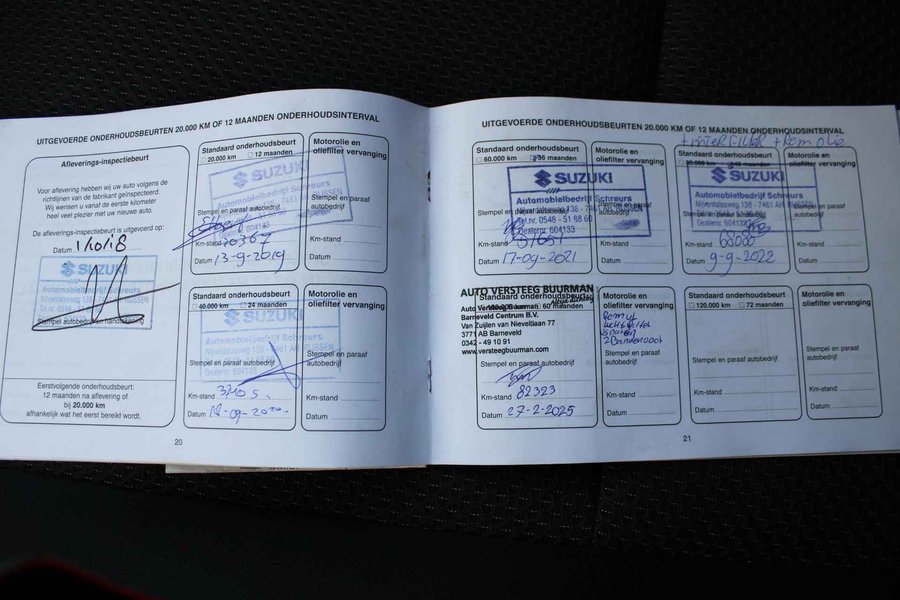 UITGEVOERDE ONDERHOUDSBEURTEN 20.000 KM OF 12 MAANDEN ONDERHOUDSINTERVAL
Afleverings-inspectiebeurt
Voor aflevering hebben wij uw auto volgens de
richtlijnen van de fabrikant geïnspecteerd.
Wij wensen u vanaf de eerste kilometer
heel veel plezier met uw nieuwe auto.
De afleverings-inspectiebeurt is uitgevoerd op:
Datum 11018
SUZUKI
Stempel autobedrijf
Eerstvolgende onderhoudsbeurt:
12 maanden na aflevering of
bij 20.000 km
afhankelijk wat het eerst bereikt wordt.
Standaard onderhoudsbeurt
20.000 km 12 maanden
SUZUKI
Automobielbedrijf Schreurs
7461 AH RIJSSEN
Dealernr. 604133
Stempel en paraaf autobedrijf
Km-stand 20367
Datum 13-9-2019
Motorolie en
oliefilter vervanging
Stempel en paraaf
autobedrijf
Km-stand
Datum
Standaard onderhoudsbeurt
40.000 km 24 maanden
SUZUKI
Automobielbedrijf Schreurs
Stempel en paraaf autobedrijf
Km-stand
Datum
Motorolie en
oliefilter vervanging
Stempel en paraaf
autobedrijf
Km-stand
Datum
20
UITGEVOERDE ONDERHOUDSBEURTEN 20.000 KM OF 12 MAANDEN ONDERHOUDSINTERVAL
Standaard onderhoudsbeurt
60.000 km 36 maanden
SUZUKI
Automobielbedrijf Schreurs
Tel.nr. 0548 - 51 88 60
Dealernr. 604133
Stempel en paraaf autobedrijf
Km-stand
Datum 17-09-2021
Motorolie en
oliefilter vervanging
Stempel en paraaf
autobedrijf
Km-stand
Datum
+ Remolie
Standaard onderhoudsbeurt
80.000 km 48 maanden
SUZUKI
Automobielbedrijf Schreurs
Nijverdalseweg 138 - 7461 AH RIJSSEN
Stempel en paraaf autobedrijf
Km-stand 68000
Datum 9-9-2022
Motorolie en
oliefilter vervanging
Stempel en paraaf
autobedrijf
Km-stand
Datum
AUTO VERSTEEG BUURMAN
Standaard onderhoudsbeurt
60 maanden
Barneveld Centrum B.V.
Van Zuijlen van Nieveltlaan 77
3771 AB Barneveld
0342 - 49 10 91
www.versteegbuurman.com
Stempel en paraaf autobedrijf
Km-stand 82323
Datum 27-2-2025
Motorolie en
oliefilter vervanging
Stempel en paraaf
autobedrijf
Km-stand
Datum
Standaard onderhoudsbeurt
120.000 km 72 maanden
Stempel en paraaf autobedrijf
Km-stand
Datum
Motorolie en
oliefilter vervanging
Stempel en paraaf
autobedrijf
Km-stand
Datum
21